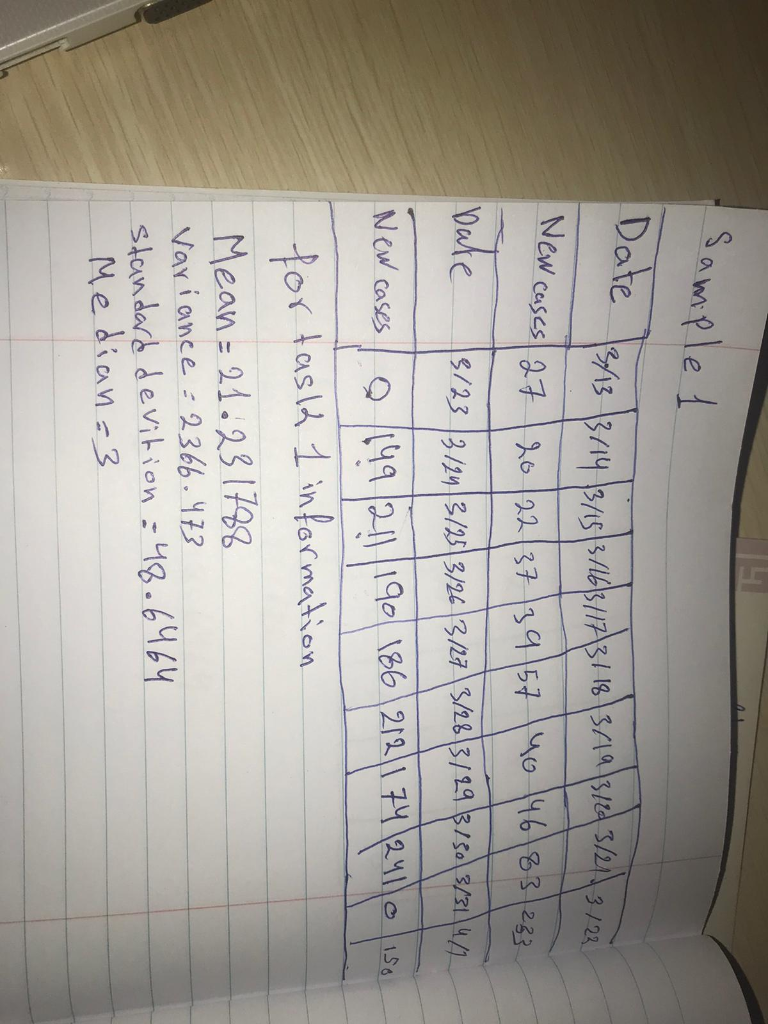 Sample 1
Date 3/13 3/14 3/15 3/16 3/17 3/18 3/19 3/20 3/21 3/23
New cases 27 20 22 37 39 57 40 46 83 233
Date 3/23 3/24 3/25 3/26 3/27 3/28 3/29 3/30 3/31 4/1
New cases 0 149 211 190 186 212 174 241 0 150
for task 1 information
Mean = 21.231788
variance = 2366.473
standard devition = 48.6464
Median = 3